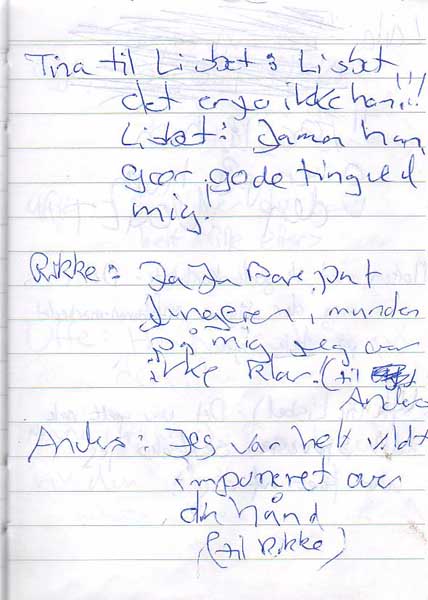 Tina til Lisbet: Lisbet
det er jo ikke ham!!!
Lisbet: Jamen han
gør gode ting ved
mig.
Rikke: Ja du bare put
tungen i munden
på mig, jeg var
ikke klar. (til
Anders
Anders: Jeg var helt vildt
imponeret over
din hånd
(til Rikke)